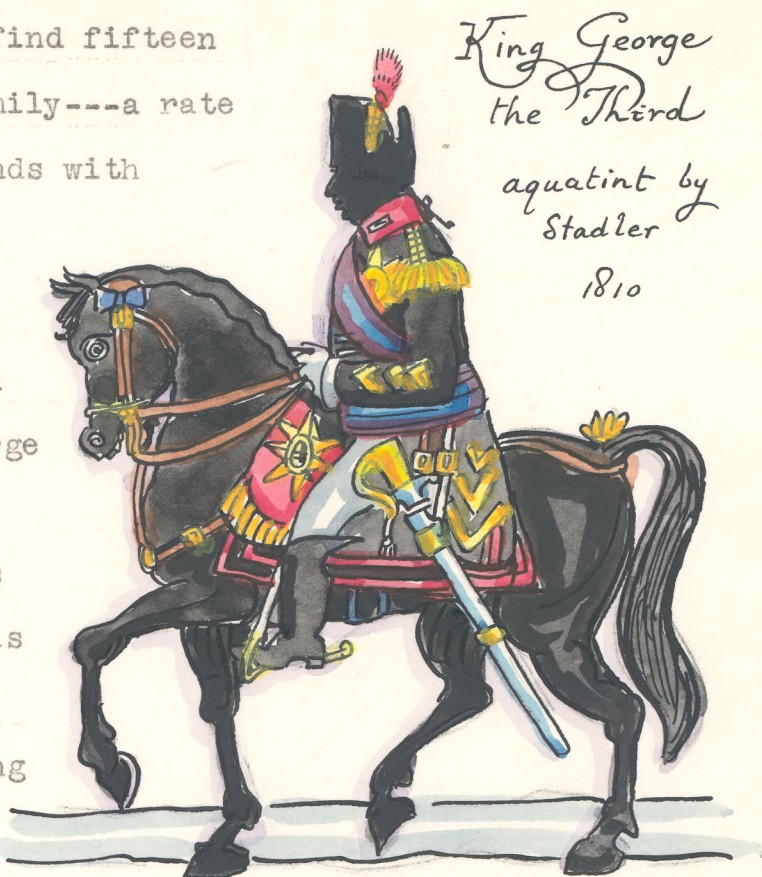 find fifteen
mily---a rate
nds with
rge
is
ng
King George
the Third
aquatint by
Stadler
1810